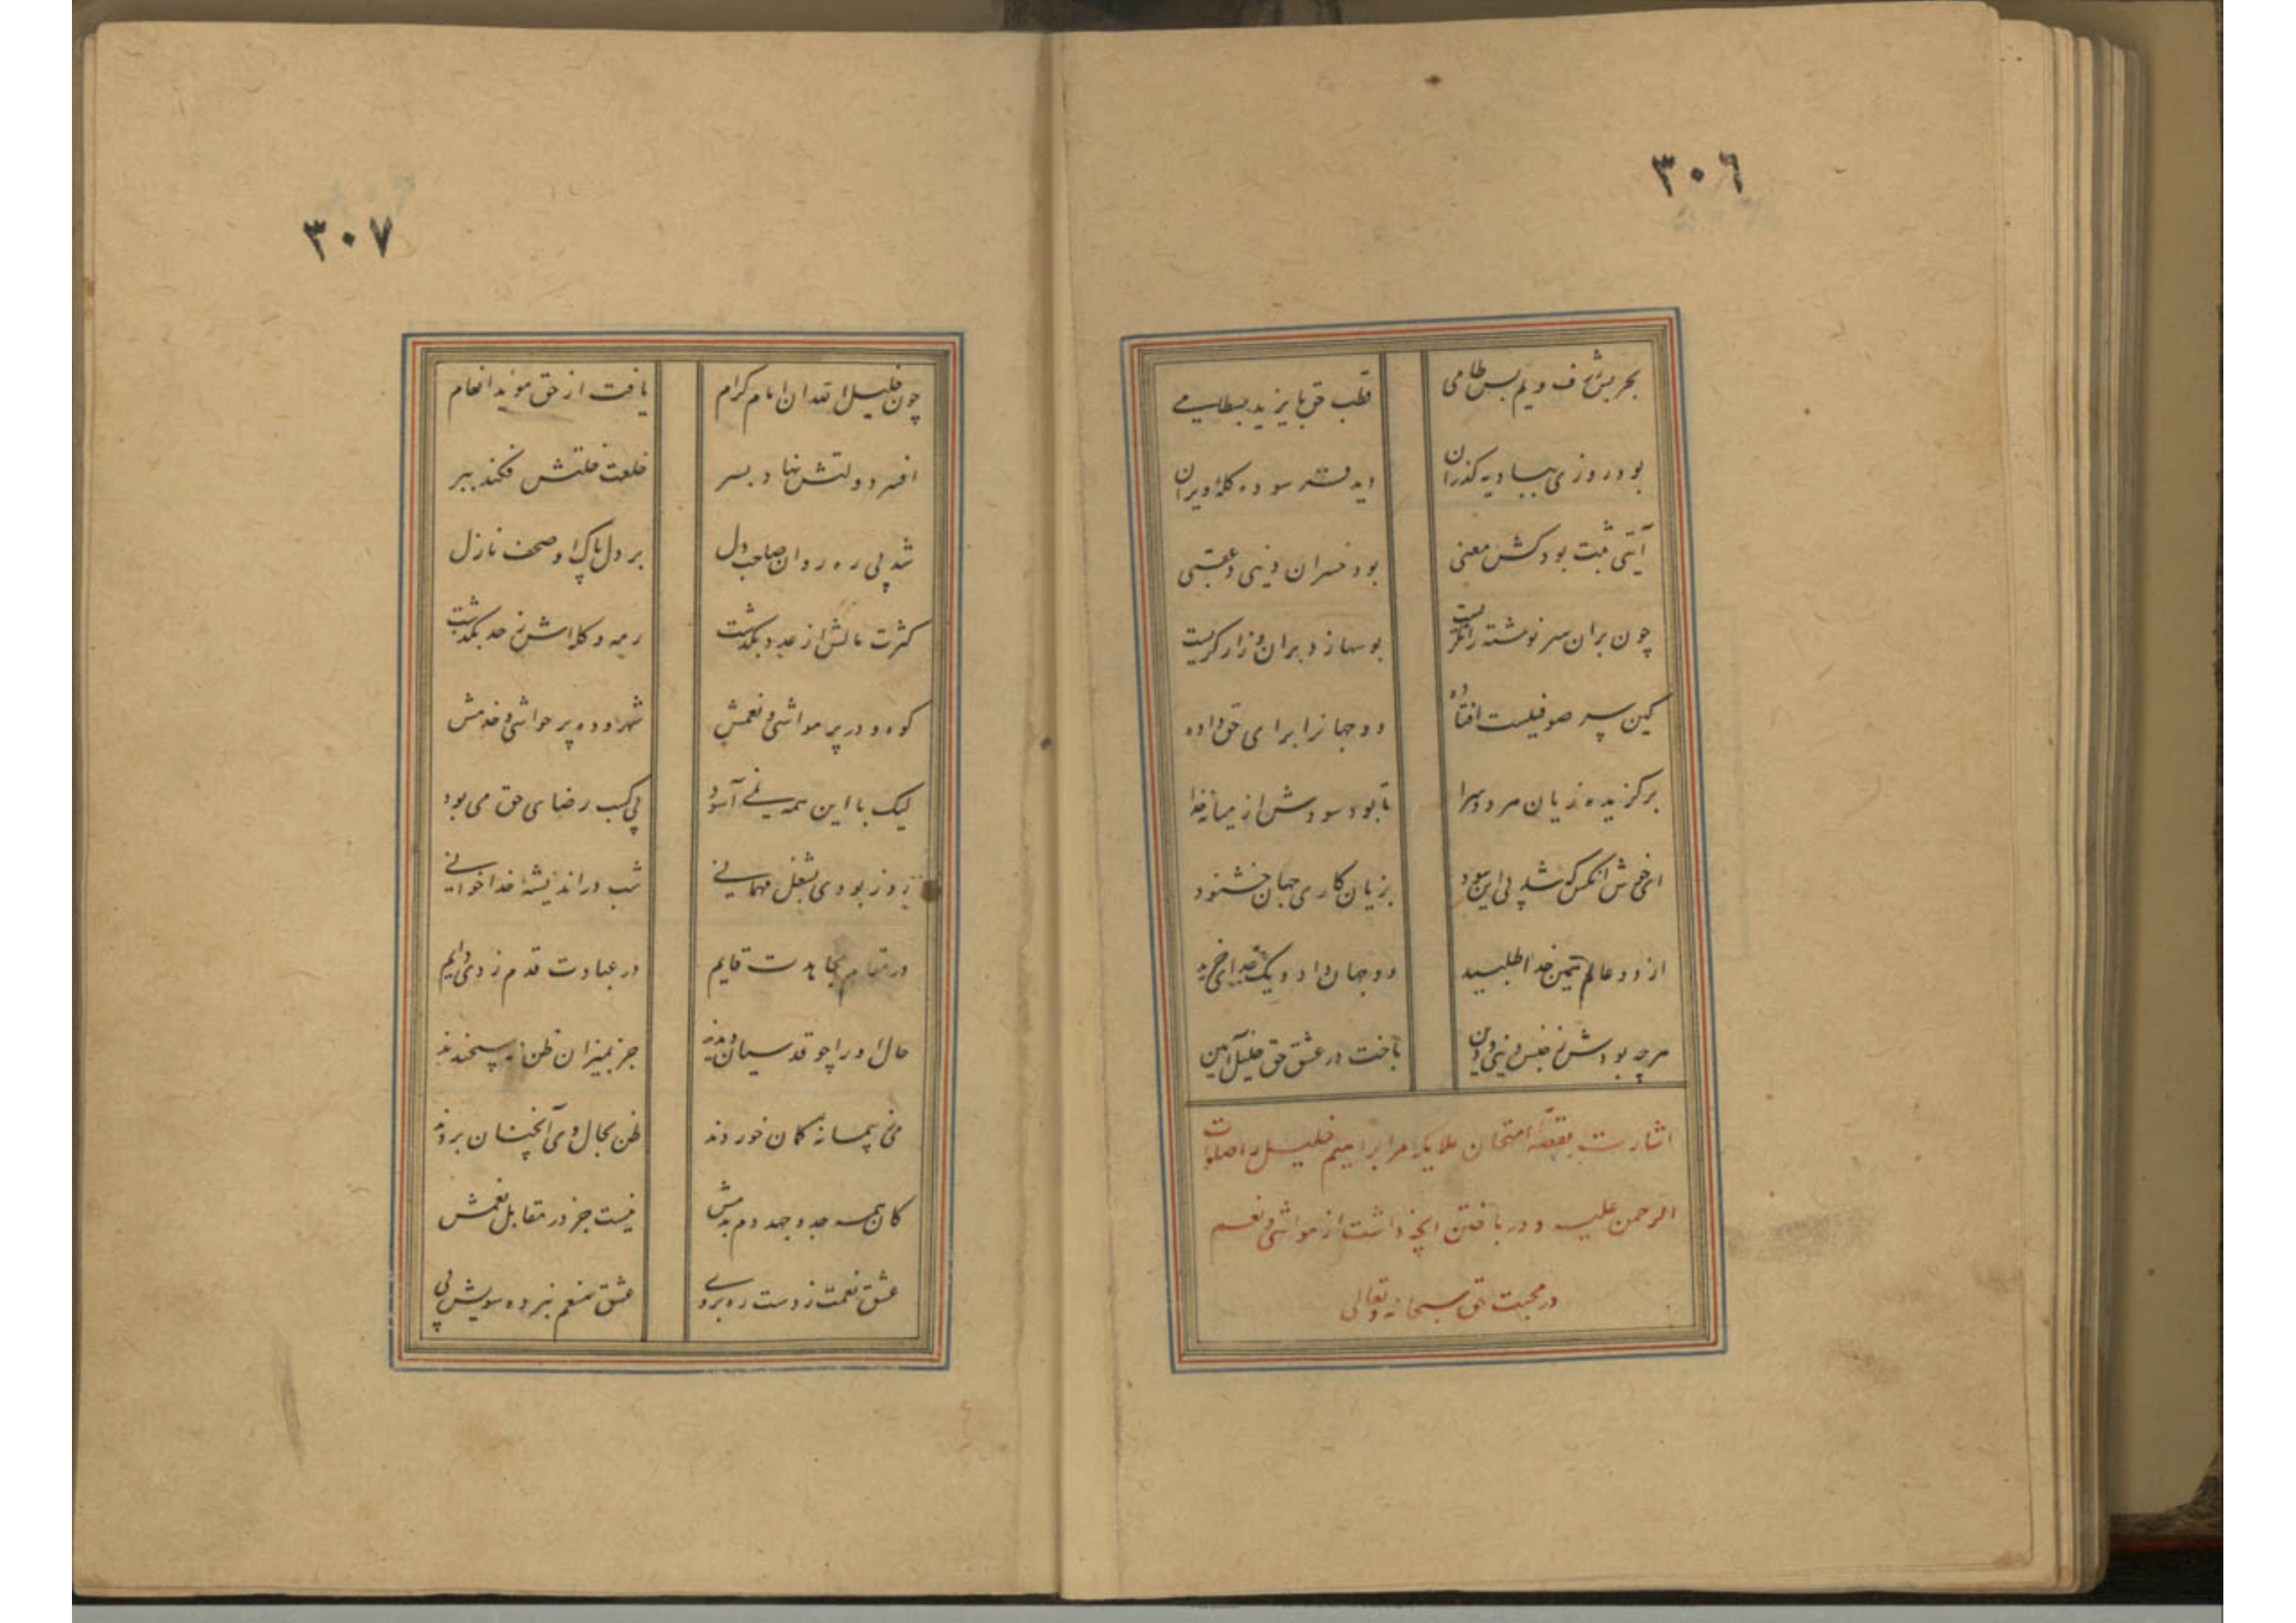 ٣٠٦
بحر بس ژرف و یم بس طامی قطب حق بایزید بسطامی
بود روزی ببادیه گذران دید فرسوده کلهٔ ویران
آیتی ثبت بود کش معنی بود خسران دنیی و عقبی
چون بران سر نوشته را نگریست بوسها زد بران و زار گریست
کین سر صوفیست افتاده دو جهانرا برای حق داده
برگزیده زیان هر دو سرا تا بود سودش از میانه خدا
ای خوش آنکس که شد پی این سود بزیان کاری جهان خشنود
از دو عالم همین خدا طلبید دو جهان داد و یک خدای خرید
هرچه بودش ز جنس دنیی و دین باخت در عشق حق خلیل آیین
اشارت بقصه امتحان ملایکه مر ابراهیم خلیل را صلوات
الرحمن علیه و در باختن آنچه داشت از مواشی و نعم
در محبت حق سبحانه و تعالی
٣٠٧
چون خلیل الله آن امام کرام یافت از حق مواید انعام
افسر دولتش نهاد بسر خلعت خلتش فکند ببر
شد پی ره روان صاحب دل بر دل پاک او صحف نازل
کثرت مالش از عدد بگذشت رمه و گله اش ز حد بگذشت
کوه و در پر مواشی و نعمش شهر و ده پر حواشی و خدمش
لیک با این همه نمی آسود پی کسب رضای حق می بود
روز بودی بشغل مهمانی شب در اندیشهٔ خدا خوانی
در مقام مجاهدت قایم در عبادت قدم زدی دایم
حال او را چو قدسیان دیدند جز بمیزان ظن نسنجیدند
می پیمانه گمان خوردند ظن بحال وی آنچنان بردند
کان همه جد و جهد دم بدمش نیست جز در مقابل نعمش
عشق نعمت ز دست ره بروی عشق منعم نبرده سویش پی